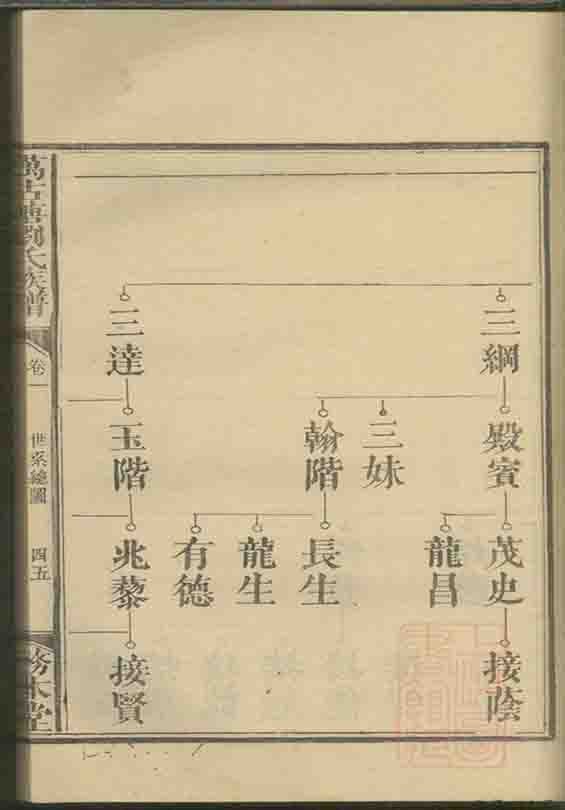 三綱
三達
殿賓
三妹
翰階
玉階
茂史
龍昌
長生
龍生
有德
兆藜
接蔭
接賢
萬古塘劉氏族譜
卷一
世系總圖
四五
務本堂